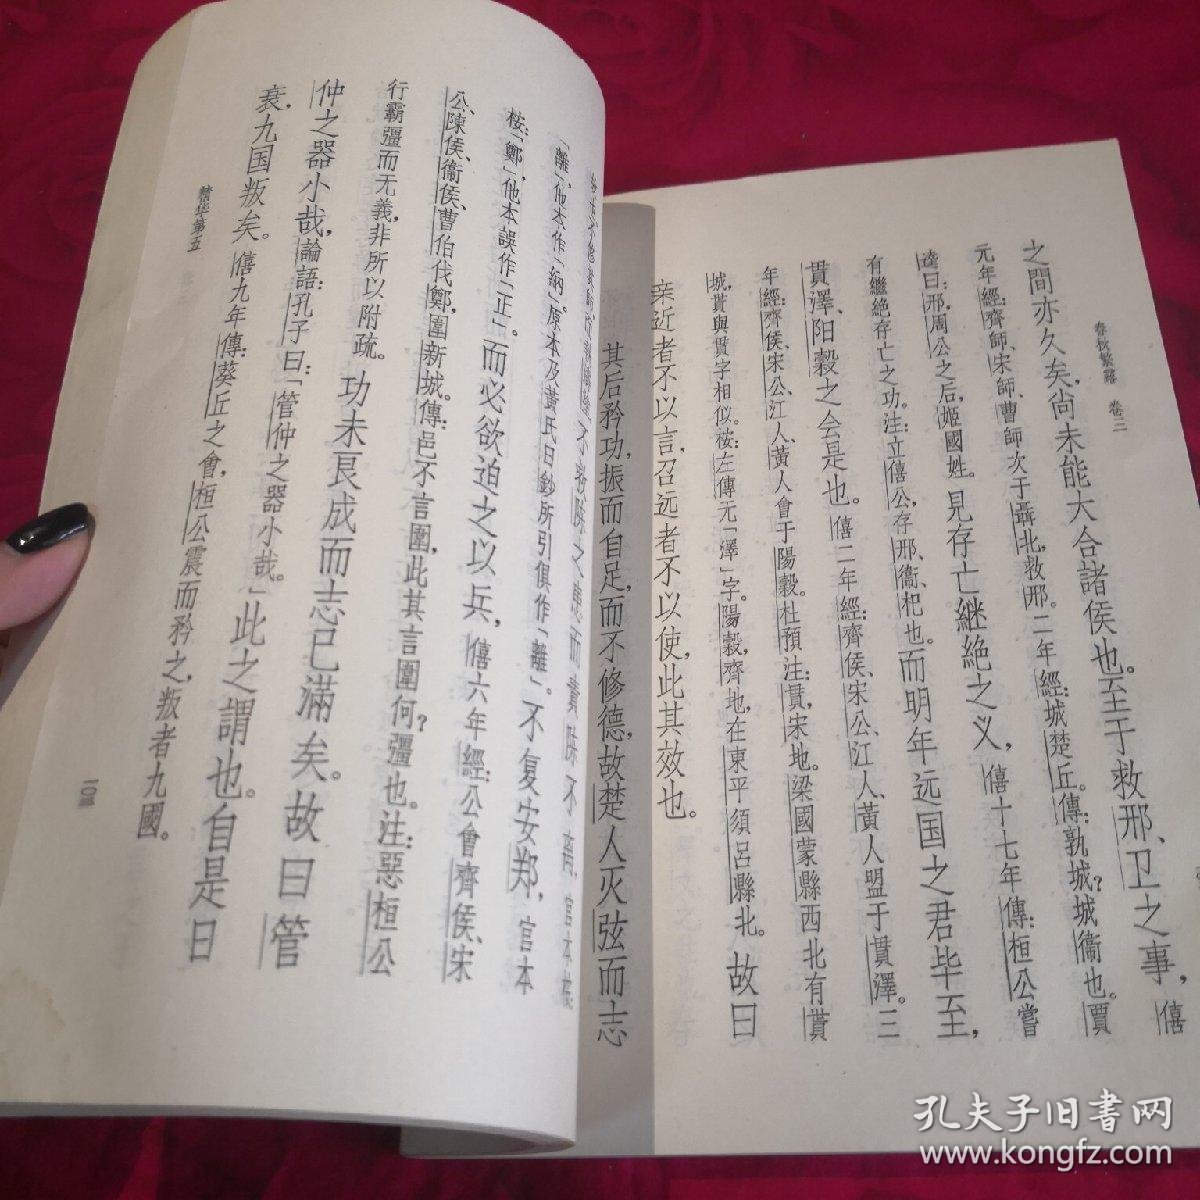 春秋繁露 卷三
之間亦久矣，尚未能大合諸侯也。至于救邢、卫之事，僖
元年經：齊師、宋師、曹師次于聶北，救邢。二年經：城楚丘。傳：孰城？城衞也。賈
逵曰：邢，周公之后，姬國姓。見存亡継絶之义，僖十七年傳：桓公嘗
有繼絶存亡之功。注：立僖公，存邢、衞、杞也。而明年远国之君毕至，
貫澤、阳穀之会是也。僖二年經：齊侯、宋公、江人、黃人盟于貫澤。三
年經：齊侯、宋公、江人、黃人會于陽穀。杜預注：貫，宋地。梁國蒙縣西北有貰
城，貰與貫字相似。桉：左傳无「澤」字。陽穀，齊地，在東平須呂縣北。故曰
亲近者不以言，召远者不以使，此其效也。
其后矜功，振而自足，而不修德，故楚人灭弦而志
「離」，他本作「納」。原本及黃氏日鈔所引俱作「離」。不复安郑，官本
桉：「鄭」，他本誤作「正」。而必欲迫之以兵，僖六年經：公會齊侯、宋
公、陳侯、衞侯、曹伯伐鄭，圍新城。傳：邑不言圍，此其言圍何？彊也。注：惡桓公
行霸彊而无義，非所以附疏。功未良成而志已滿矣。故曰管
仲之器小哉，論語：孔子曰：「管仲之器小哉。」此之謂也。自是日
衰，九国叛矣。僖九年傳：葵丘之會，桓公震而矜之，叛者九國。
精华第五
孔夫子旧書网
www.kongfz.com